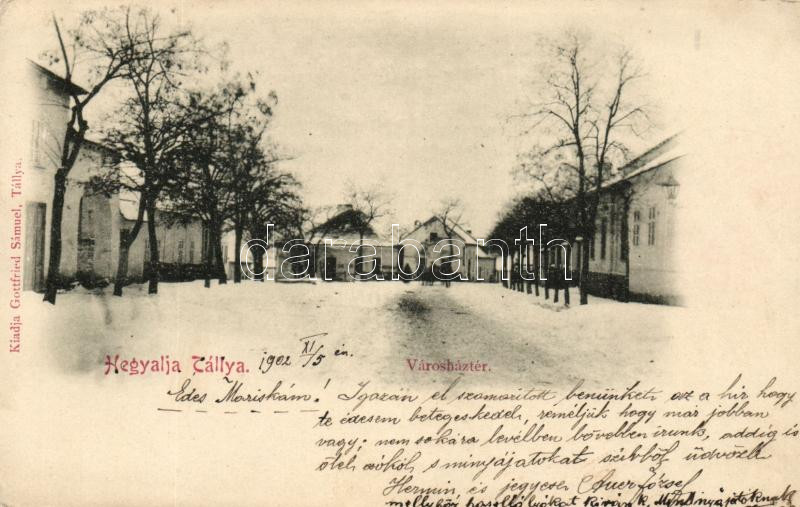 Kiadja Gottfried Sámuel, Tállya.
darabanth.com
Hegyalja Tállya. 1902 XI/5 én.
Városháztér.
Édes Mariskám! Igazán el szomorított benünket az a hir hogy
te édesem betegeskedel, reméljük hogy már jobban
vagy; nem sokára levélben bővebben irunk, addig is
ölel csókól s mindnyájatokat szivből üdvözli
Hermin, és jegyese Auer József
hasonló jókat kivánk Mindnyájatoknak